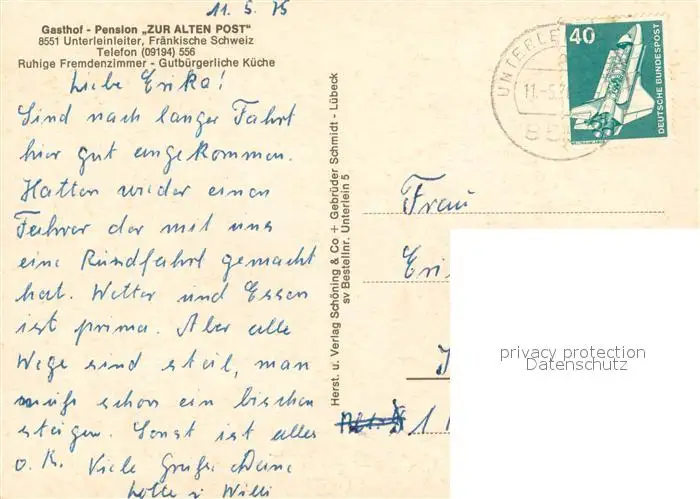 11. 5. 75
Gasthof - Pension „ZUR ALTEN POST“
8551 Unterleinleiter, Fränkische Schweiz
Telefon (09194) 556
Ruhige Fremdenzimmer - Gutbürgerliche Küche
Liebe Erika!
Sind nach langer Fahrt
hier gut angekommen.
Hatten wieder einen
Fahrer der mit uns
eine Rundfahrt gemacht
hat. Wetter und Essen
ist prima. Aber alle
Wege sind steil, man
muß schon ein bischen
steigen. Sonst ist alles
o. K. Viele Grüße Deine
Lotte u Willi
Herst. u. Verlag Schöning & Co + Gebrüder Schmidt - Lübeck
sv Bestellnr. Unterlein 5
UNTERLE
11.-5.
85
40
DEUTSCHE BUNDESPOST
Frau
Eri
1
privacy protection
Datenschutz